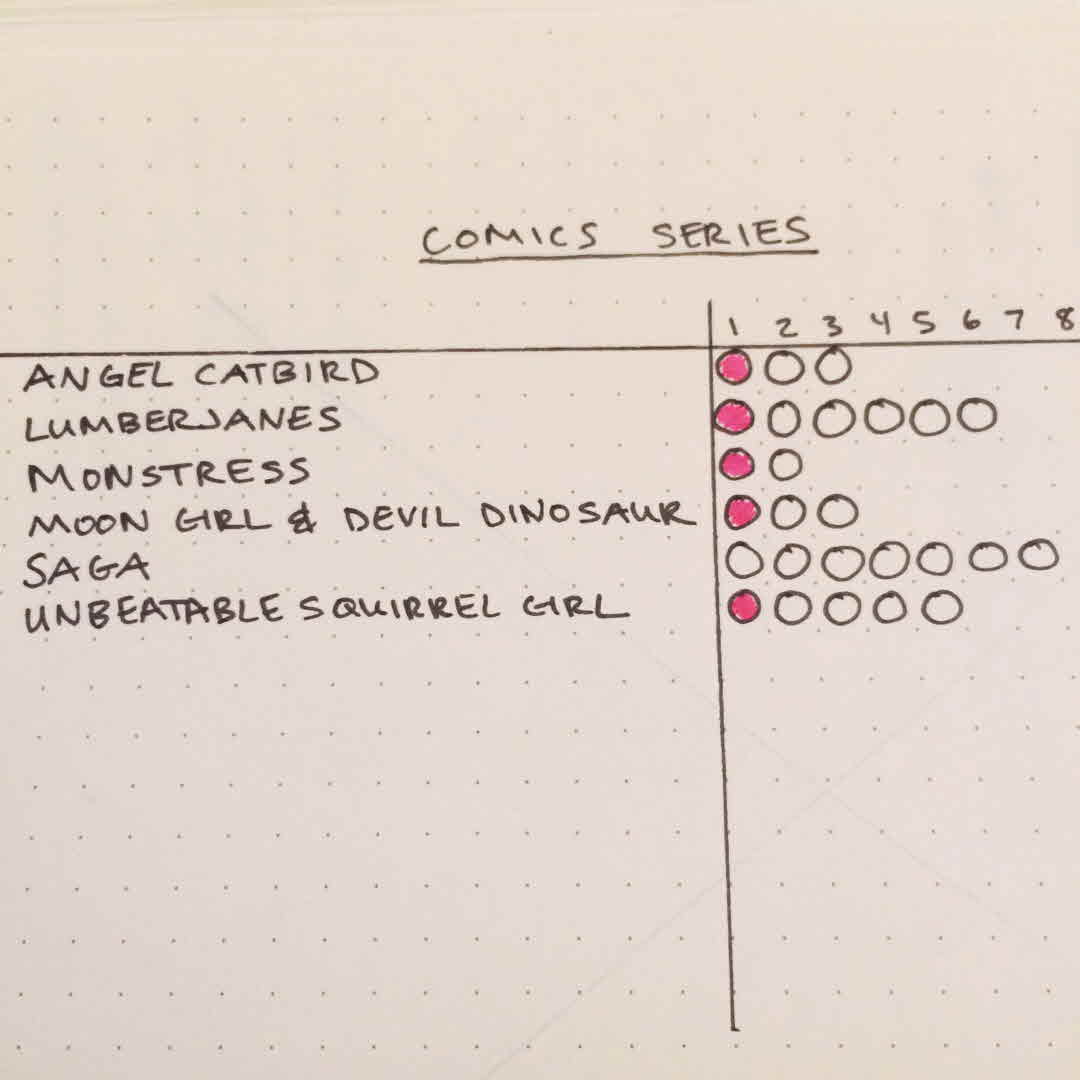 COMICS SERIES
1 2 3 4 5 6 7 8
ANGEL CATBIRD
LUMBERJANES
MONSTRESS
MOON GIRL & DEVIL DINOSAUR
SAGA
UNBEATABLE SQUIRREL GIRL